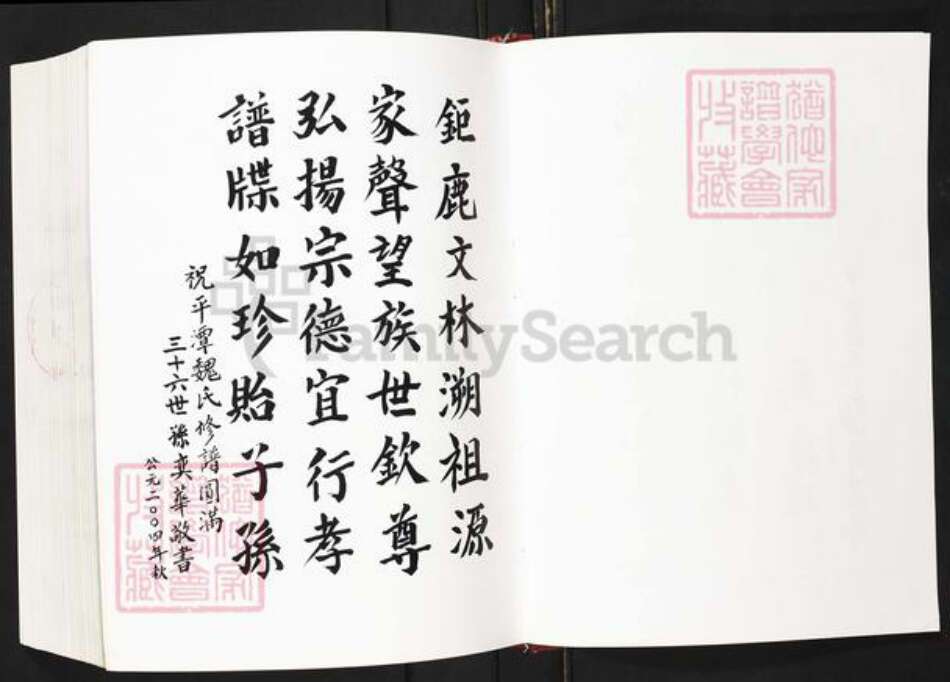 鉅鹿文林溯祖源
家聲望族世欽尊
弘揚宗德宜行孝
譜牒如珍貽子孫
祝平潭魏氏修譜圓滿
三十六世孫奕華敬書
公元二〇〇四年秋
FamilySearch